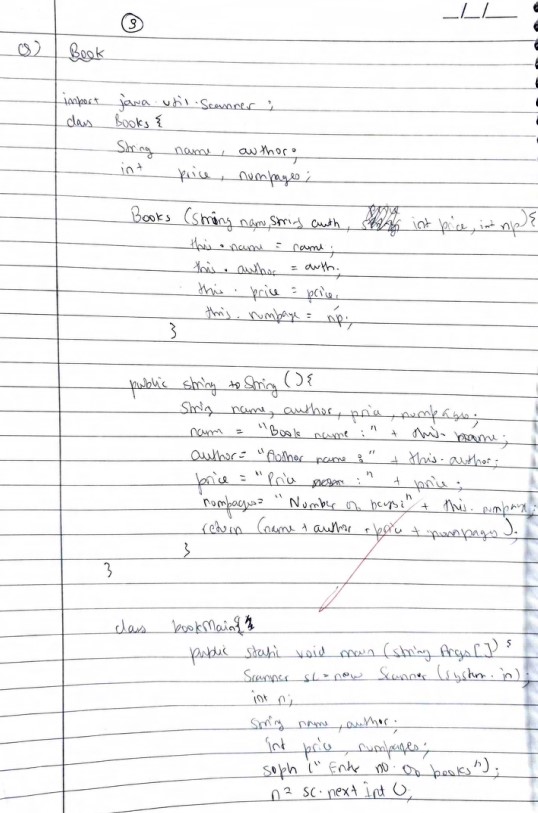 ③
_/_/_
Q) Book
import java.util.Scanner ;
class Books {
String name, author;
int price, numpages;
Books (String nam, String auth, int price, int np) {
this.name = name;
this.author = auth;
this.price = price;
this.numpage = np;
}
public string toString () {
String name, author, price, numpages;
name = "Book name :" + this.name;
author = "Author name :" + this.author;
price = "Price :" + price;
numpages = "Number of pages:" + this.numpages
return (name + author + price + numpages);
}
}
class bookMain {
public static void main (string Args[])
Scanner sc = new Scanner (system.in);
int n;
string name, author;
int price, numpages;
sopln ("Enter no. of books");
n = sc.next int ();